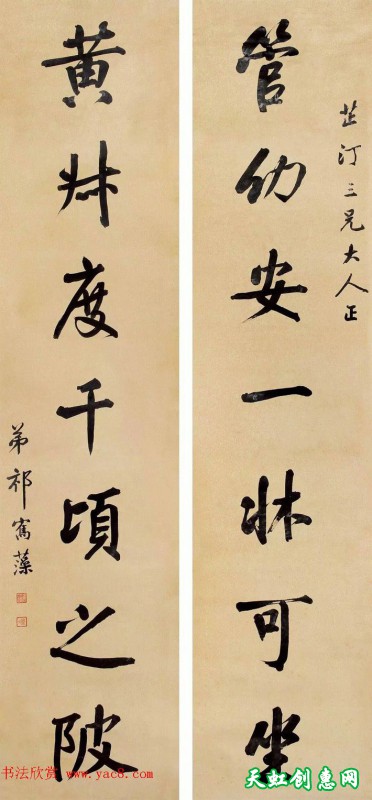 芷汀三兄大人正
管幼安一牀可坐
黄叔度千頃之陂
弟祁寯藻
书法欣赏 www.yac8.com
天虹创意网